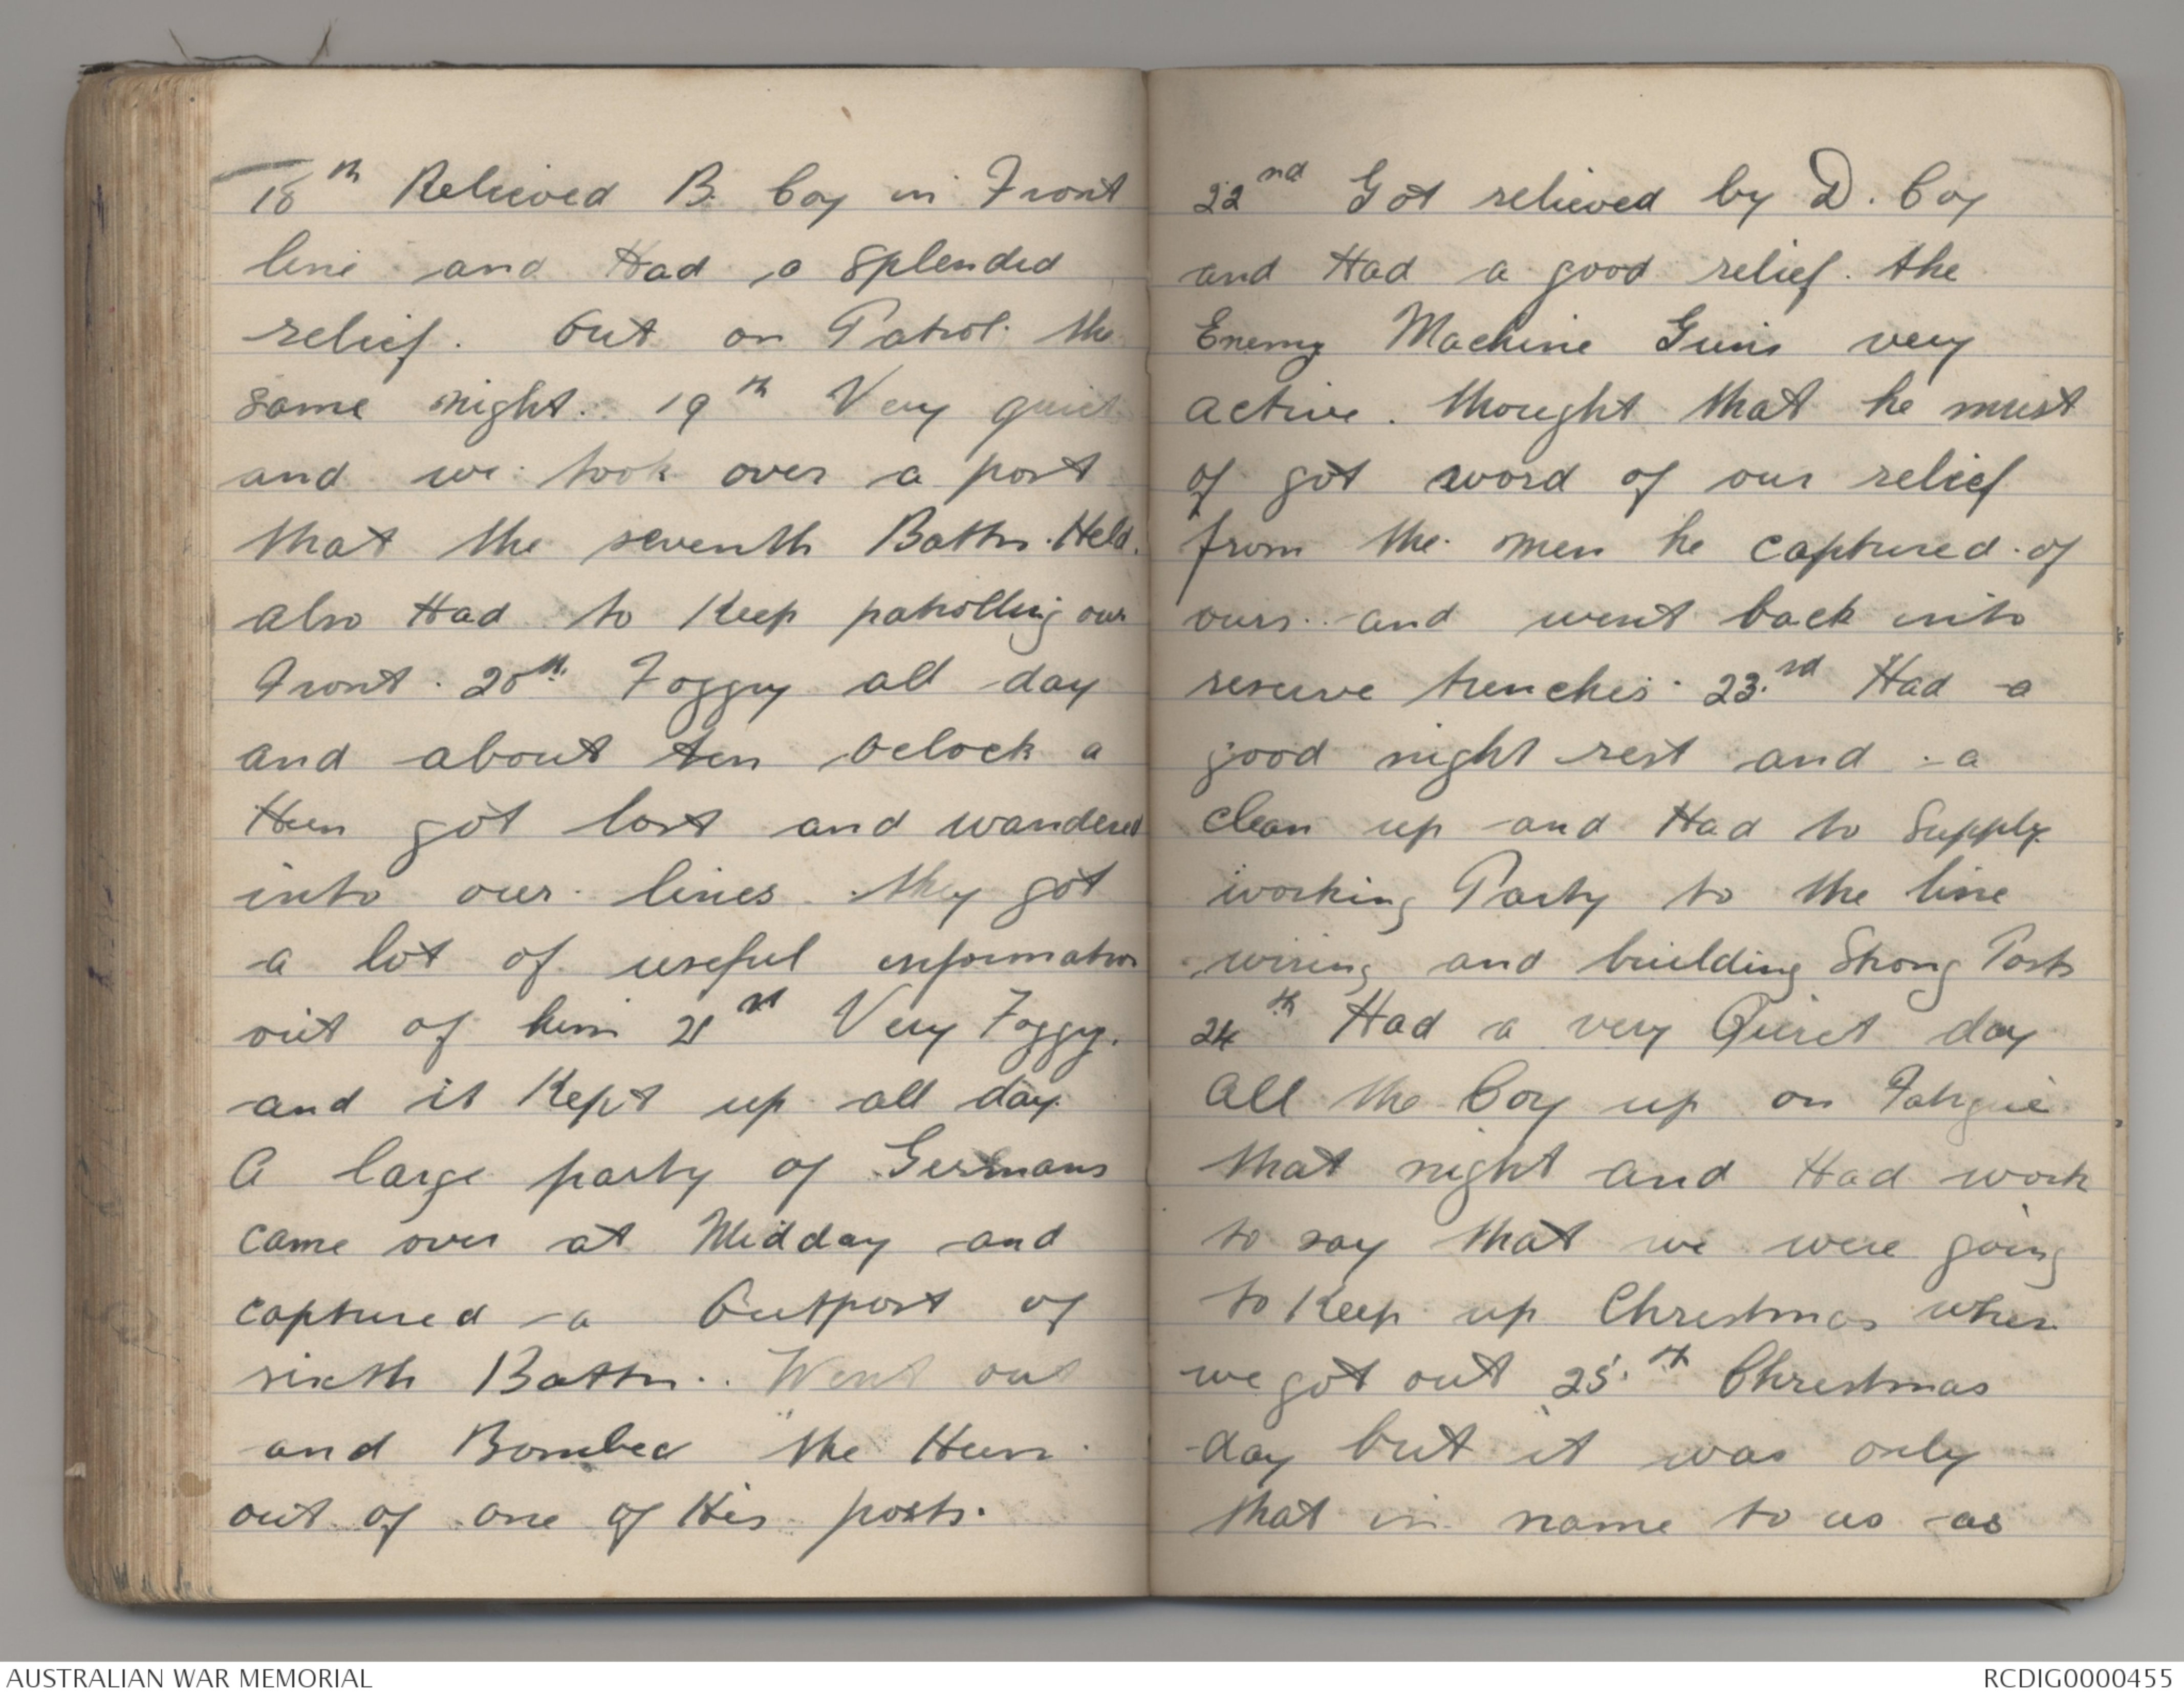 18th Relieved B. Coy in Front
line and Had a splended
relief. Out on Patrol the
same night. 19th Very quiet
and we took over a post
that the seventh Battn. Held.
also Had to Keep patrolling our
Front. 20th. Foggy all day
and about ten oclock a
Hun got lost and wandered
into our lines they got
a lot of useful information
out of him 21st Very Foggy.
and it Kept up all day.
A large party of Germans
came over at Midday and
captured a Outpost of
sixth Battn.. Went out
and Bombed the Hun
out of one of His posts.
22nd Got relieved by D. Coy
and Had a good relief. the
Enemy Machine Guns very
active. thought that he must
of got word of our relief
from the men he captured of
ours.. and went back into
reserve trenches. 23.rd Had a
good night rest and a
clean up and Had to Supply
working Party to the line
wiring and building Strong Posts
24th Had a very Quiet day
all the Coy up on Fatigue
that night and Had work
to say that we were going
to Keep up Christmas when
we got out 25.th Christmas
day but it was only
that in name to us as
AUSTRALIAN WAR MEMORIAL
RCDIG0000455